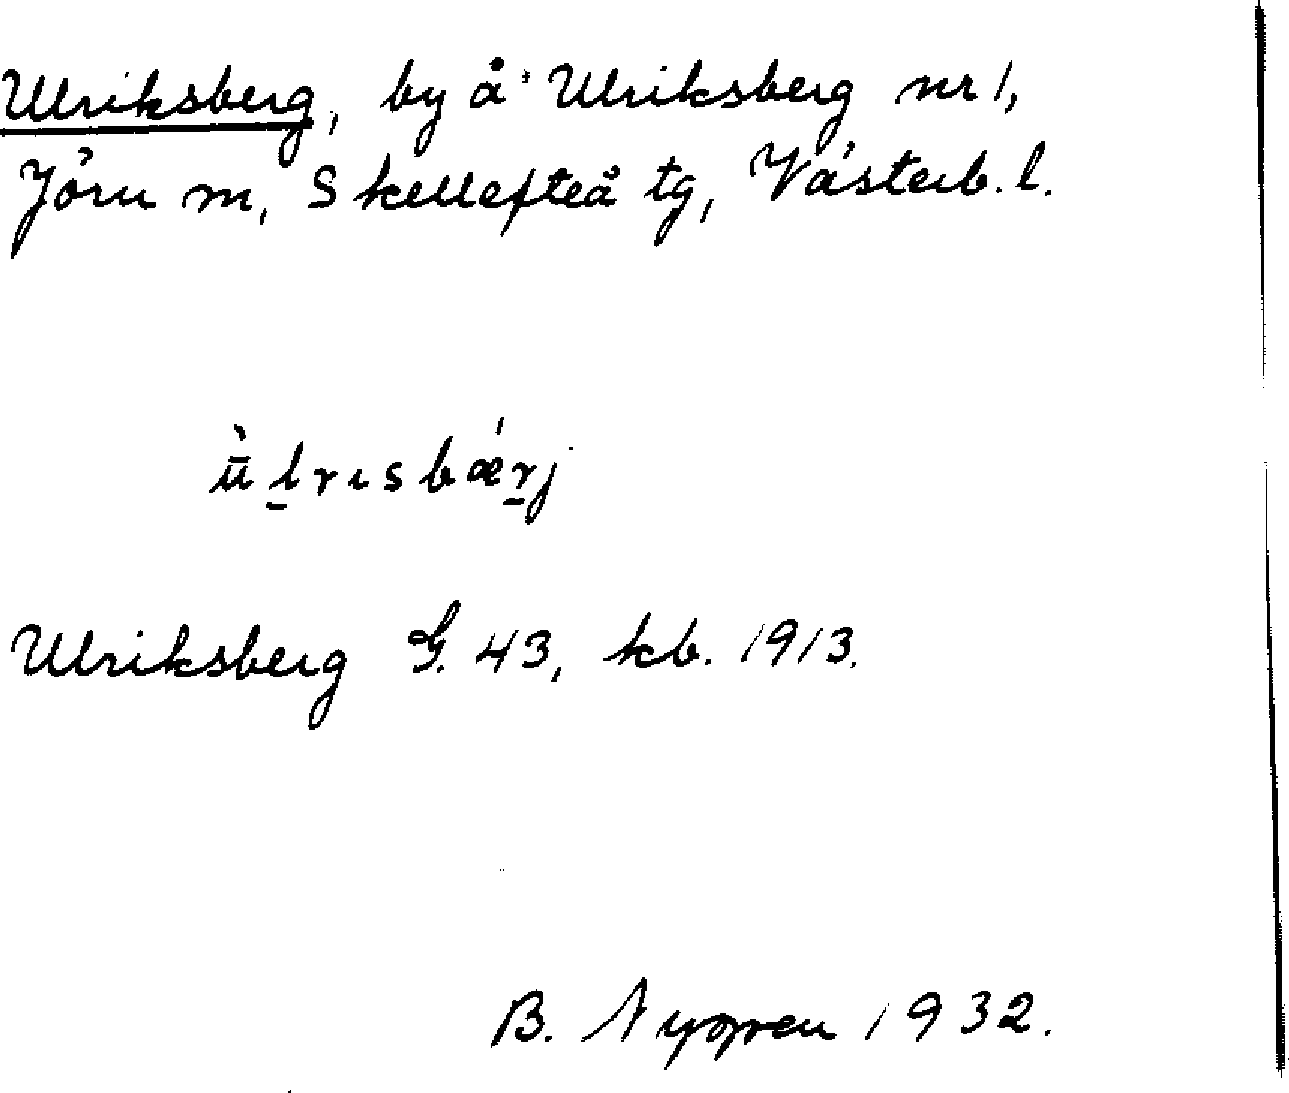 Ulriksberg, by å Ulriksberg nr 1,
Jörn sn, Skellefteå tg, Västerb. l.
ǜl̲rısbǽr̲j
Ulriksberg G. 43, kb. 1913.
B. 1932.